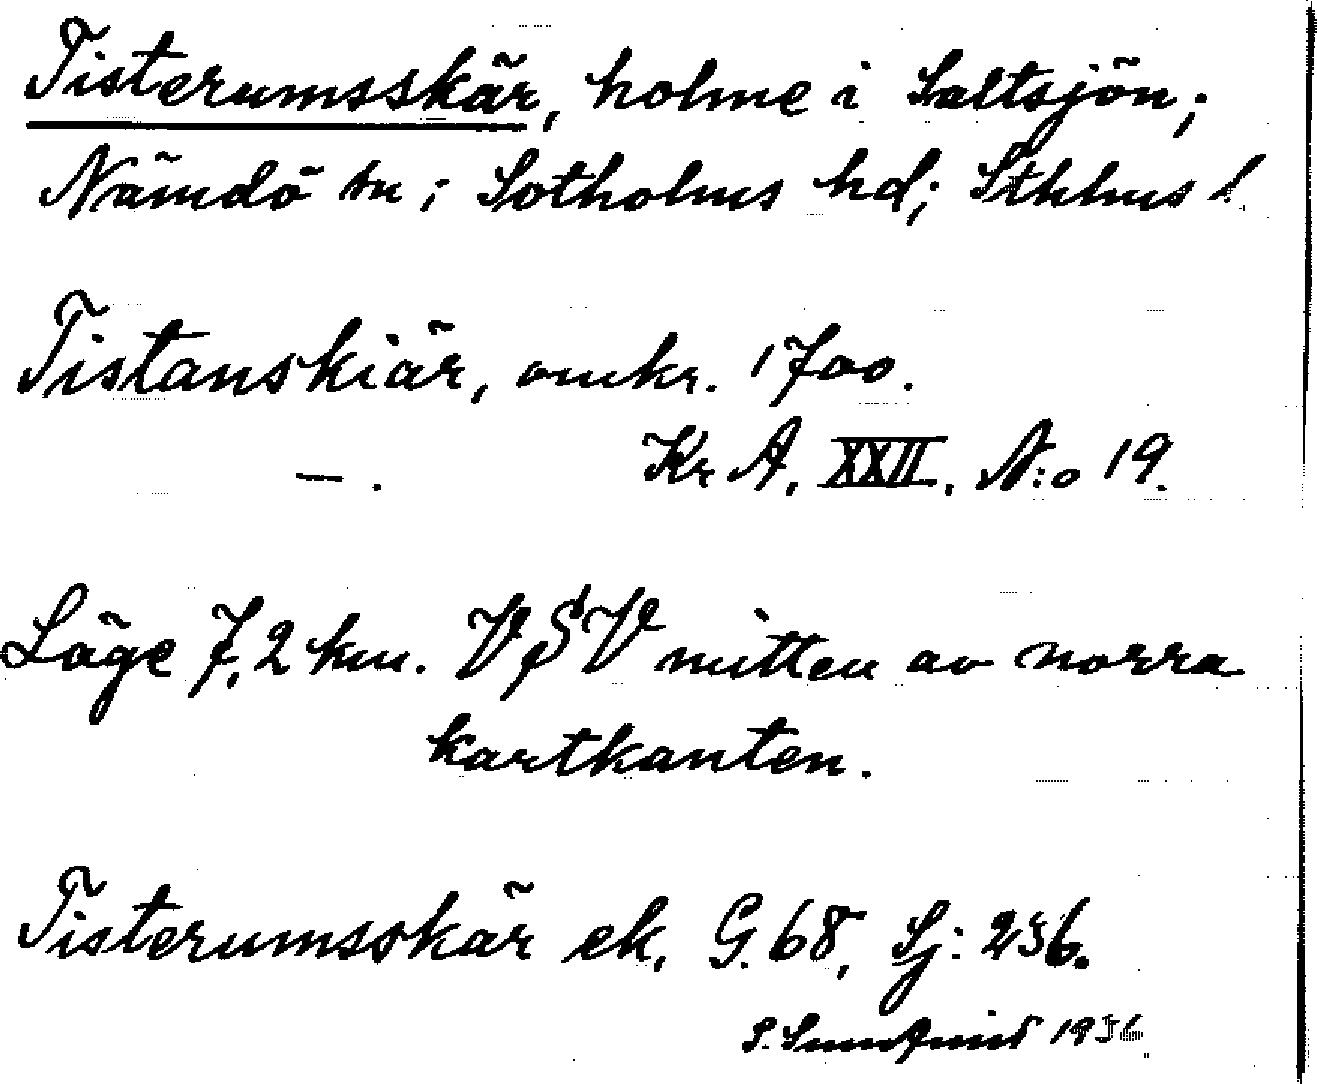 Tisterumsskär, holme i Saltsjön;
Nämdö sn; Sotholms hd; Sthlms l.
Tistanskiär, omkr. 1700.
—. Kr A, XXII, N:o 19.
Läge 7,2 km. VSV mitten av norra
kartkanten.
Tisterumsskär ek, G. 68, Sj: 236.
S. Sundquist 1936